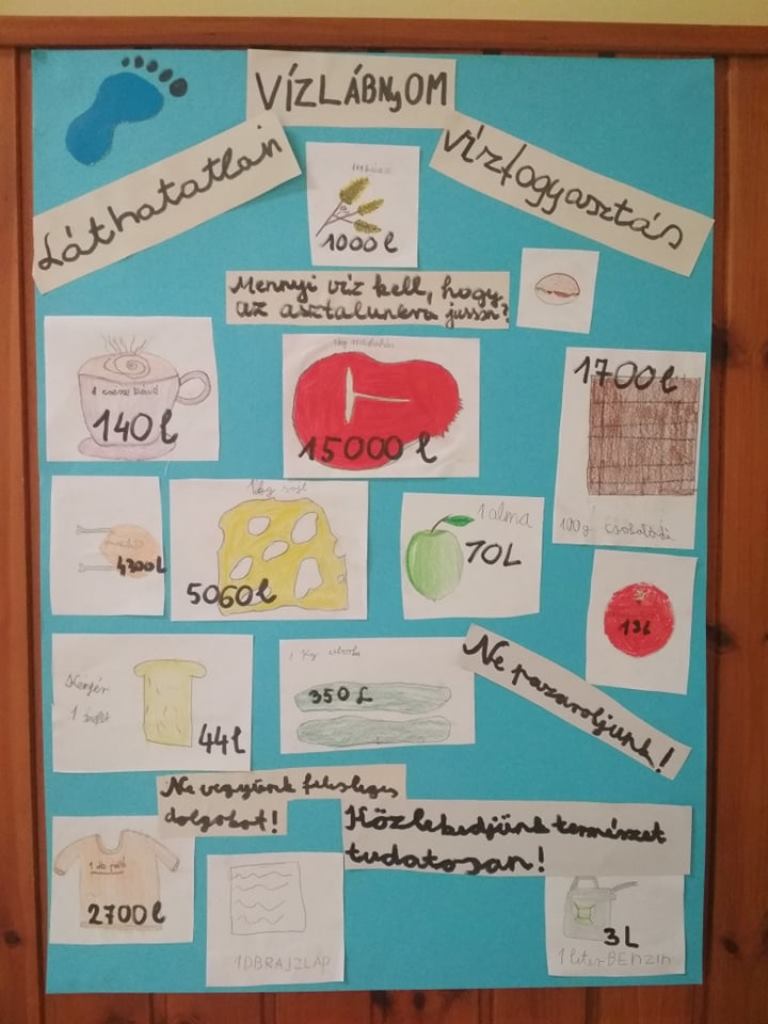 VÍZLÁBNyOM
Láthatatlan
vízfogyasztás
1000 l
Mennyi víz kell, hogy
az asztalunkra jusson?
1 csésze kávé
140 l
15000 l
1700 l
100 g csokoládé
4300 l
1 kg sajt
5060 l
1 alma
70L
13 l
Kenyér
1 szelet
44 l
1 Kg uborka
350 L
Ne pazaroljunk!
Ne vegyünk felesleges
dolgokat!
Közlekedjünk természet
tudatosan!
1 db póló
2700 l
1DBRAJZLAP
3 L
1 liter BENZIN